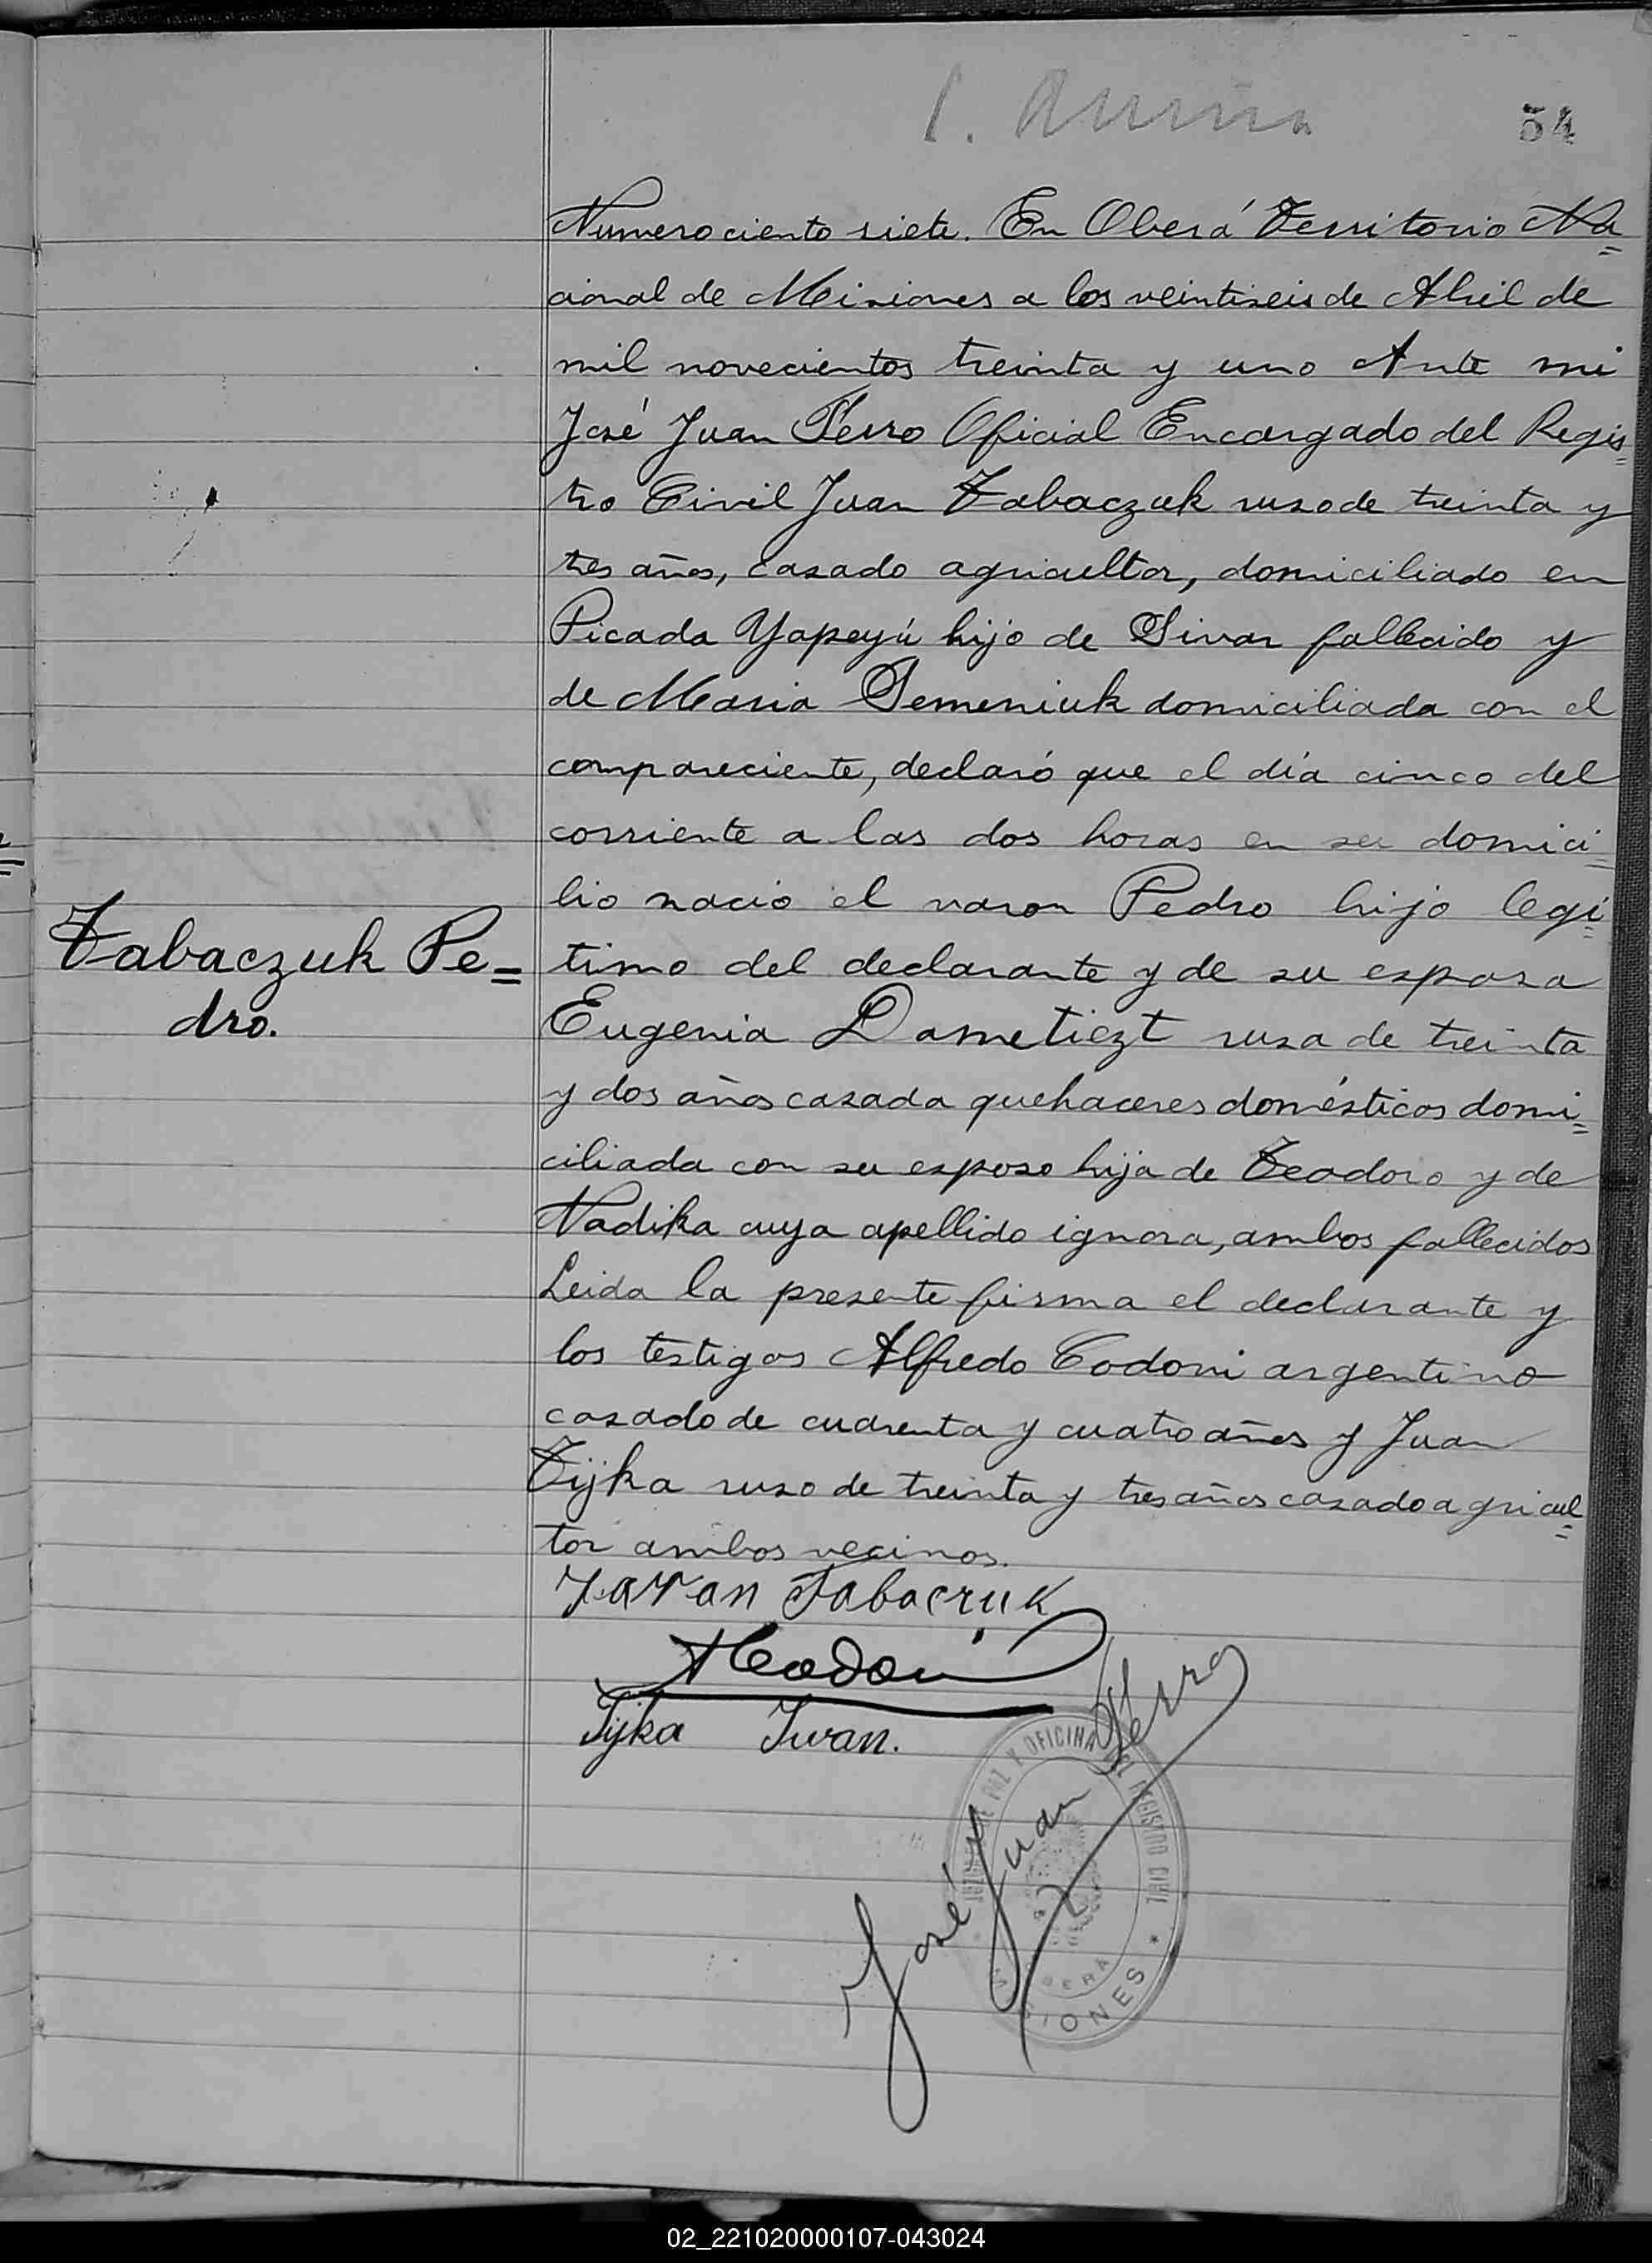 54
Numero ciento siete. En Oberá Territorio Na=
cional de Misiones a los veintiseis de Abril de
mil novecientos treinta y uno Ante mi
José Juan Ferro Oficial Encargado del Regis=
tro Civil Juan Tabaczuk ruso de treinta y
tres años, casado agricultor, domiciliado en
Picada Yapeyú hijo de Sivan fallecido y
de Maria Semeniuk domiciliada con el
compareciente, declaró que el día cinco del
corriente a las dos horas en su domici=
lio nació el varon Pedro hijo legi=
Tabaczuk Pe=
dro.
timo del declarante y de su esposa
Eugenia Dametiezt rusa de treinta
y dos años casada quehaceres domésticos domi=
ciliada con su esposo hija de Teodoro y de
Nadika cuya apellido ignora, ambos fallecidos
Leida la presente firma el declarante y
los testigos Alfredo Codoni argentino
casado de cuarenta y cuatro años y Juan
Tijka ruso de treinta y tres años casado agricul=
tor ambos vecinos.
Tabaczuk
ACodoni
Tijka Iwan.
José Juan Ferro
OFICINA DEL REGISTRO CIVIL
02_221020000107-043024